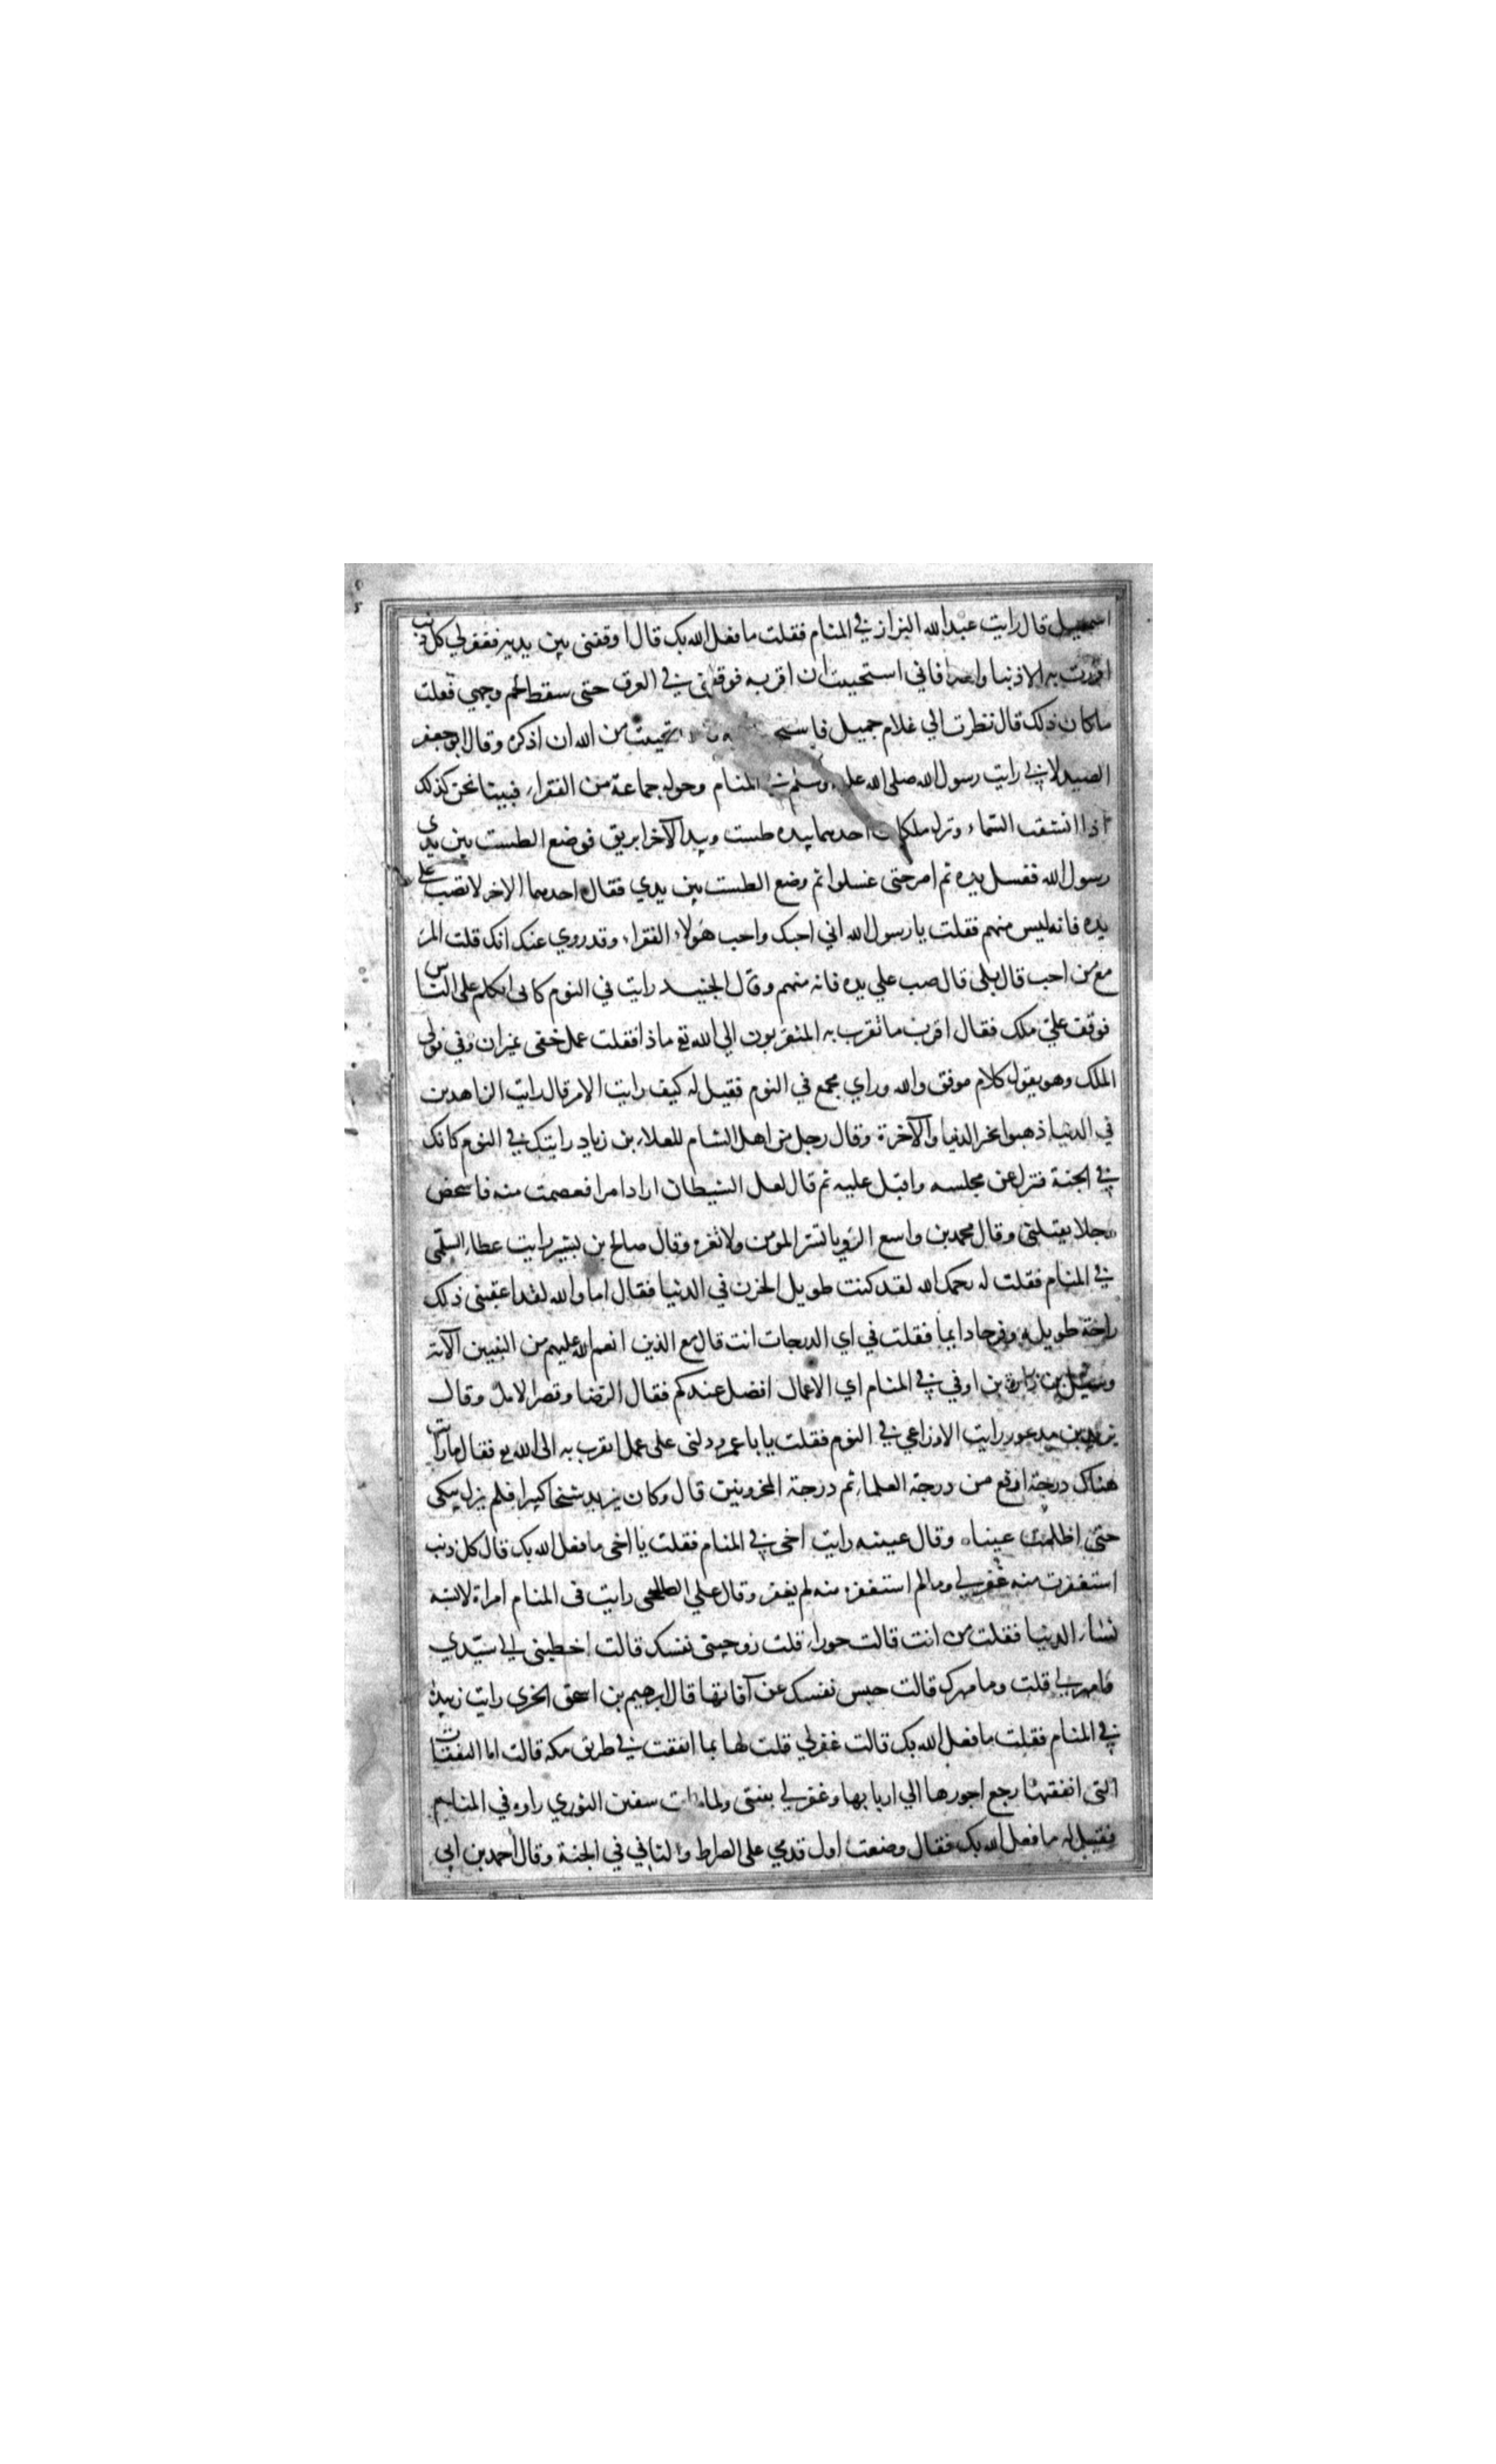 اسمعيل قال رايت عبد الله البزاز في المنام فقلت ما فعل الله بك قال اوقفني بين يديه فغفر لي كل ذنب
اقررت به الا ذنبا واحدا فاني استحييت ان اقر به فوقفني في العرق حتى سقط لحم وجهي فقلت
ما كان ذلك قال نظرت الي غلام جميل من الله ان اذكره وقال ابو جعفر
الصيدلاني رايت رسول الله صلى الله عليه وسلم في المنام وحوله جماعة من الفقراء فبينا نحن كذلك
اذا انشقت السماء ونزل ملكان احدهما بيده طست وبيد الآخر ابريق فوضع الطست بين يدي
رسول الله فغسل يده ثم امر حتى غسلوا ثم وضع الطست بين يدي فقال احدهما الاخر لا تصب على
يده فانه ليس منهم فقلت يا رسول الله اني احبك واحب هولاء الفقراء وقد روي عنك انك قلت المرء
مع من احب قال بلى قال صب علي يده فانه منهم وقال الجنيد رايت في النوم كاني اتكلم على الناس
فوقف علي ملك فقال اقرب ما تقرب به المتقربون الي الله تع ماذا فقلت عمل خفى بميزان وفي فولى
الملك وهو يقول كلام موفق والله وراي مجمع في النوم فقيل له كيف رايت الامر قال رايت الزاهدين
في الدنيا ذهبوا بخير الدنيا والآخرة وقال رجل من اهل الشام للعلاء بن زياد رايتك في النوم كانك
في الجنة فنزل عن مجلسه واقبل عليه ثم قال لعل الشيطان اراد امرا فعصمت منه فاشخص
رجلا يقتلني وقال محمد بن واسع الرؤيا تسر المؤمن ولا تغره وقال صالح بن بشير رايت عطاء السلمي
في المنام فقلت له يرحمك الله لقد كنت طويل الحزن في الدنيا فقال اما والله لقد اعقبني ذلك
راحة طويلة وفرحا دايما فقلت في اي الدرجات انت قال مع الذين انعم الله عليهم من النبيين الآية
وسئل بن زرارة بن اوفي في المنام اي الاعمال افضل عندكم فقال الرضا وقصر الامل وقال
يزيد بن مدعور رايت الاوزاعي في النوم فقلت يا با عمرو دلني على عمل اتقرب به الى الله تع فقال ما رايت
هناك درجة ارفع من درجة العلماء ثم درجة المحزونين قال وكان يزيد شيخا كبيرا فلم يزل يبكي
حتى اظلمت عيناه وقال عيينه رايت اخي في المنام فقلت يا اخى ما فعل الله بك قال كل ذنب
استغفرت منه غفر لي وما لم استغفر منه لم يغفر وقال علي الطلحي رايت في المنام امراة لا تشبه
نساء الدنيا فقلت من انت قالت حوراء قلت زوجيني نفسك قالت اخطبني الي سيدي
وامهرني قلت وما مهرك قالت حبس نفسك عن آفاتها قال ابرهيم بن اسحق الحربي رايت زبيدة
في المنام فقلت ما فعل الله بك قالت غفر لي قلت لها بما انفقت في طريق مكه قالت اما النفقات
التى انفقتها رجع اجورها الي اربابها وغفر لي بنيتي ولما مات سفين الثوري راوه في المنام
فقيل له ما فعل الله بك فقال وضعت اول قدمي على الصراط والثاني في الجنة وقال احمد بن ابي